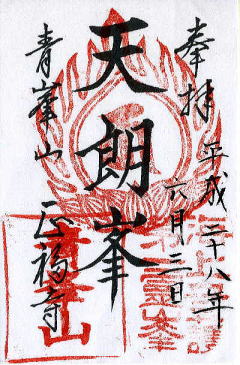 奉拝
平成二十八年
六月三日
天朗峯
青峯山
正福寺